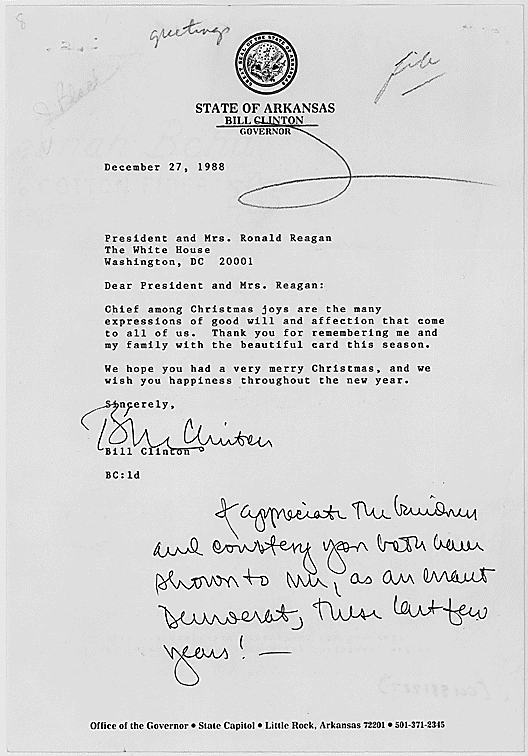 8
greetings
file
STATE OF ARKANSAS
BILL CLINTON
GOVERNOR
December 27, 1988
President and Mrs. Ronald Reagan
The White House
Washington, DC 20001
Dear President and Mrs. Reagan:
Chief among Christmas joys are the many
expressions of good will and affection that come
to all of us. Thank you for remembering me and
my family with the beautiful card this season.
We hope you had a very merry Christmas, and we
wish you happiness throughout the new year.
Sincerely,
Bill Clinton
Bill Clinton
BC:ld
I appreciate the kindness
and courtesy you both have
shown to me, as an errant
Democrat, these last few
years! —
Office of the Governor • State Capitol • Little Rock, Arkansas 72201 • 501-371-2345